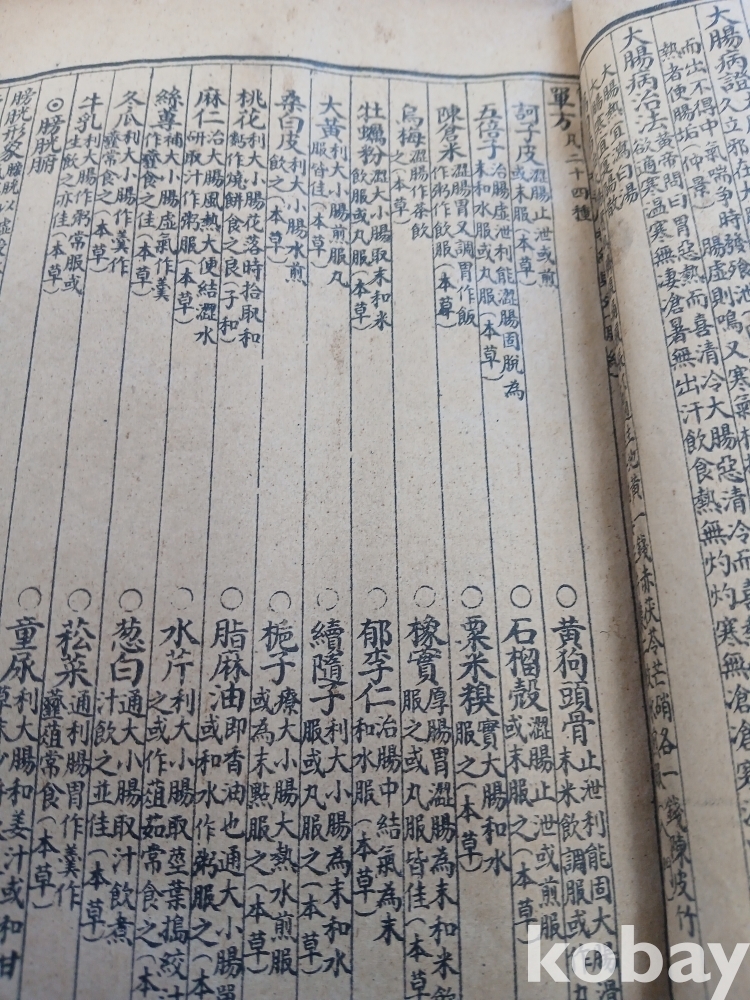 大腸病證
久立邪在
而出不得中氣喘爭
腸虛則鳴又寒氣
熱者使腸垢(仲景)
大腸病治法
黃帝問曰胃惡熱而喜清冷大腸惡清冷而
欲適寒溫寒無凄倉暑無出汗飲食熱無灼灼寒無滄滄寒
地黃一錢赤茯苓芒硝各一錢陳皮竹
單方
凡二十四種
訶子皮
澁腸止泄或煎
或末服(本草)
五倍子
治腸虛泄利能澁腸固脫為
末和水服或丸服(本草)
陳倉米
澁腸胃又調胃作飯
作粥作飮服(本草)
烏梅
澁腸作茶飮
之(本草)
牡蠣粉
澁大小腸取末和米
飮服或丸服(本草)
大黃
利大小腸煎服丸
服皆佳(本草)
桑白皮
利大小腸水煎
飮之(本草)
桃花
利大小腸花落時拾取和
麪作燒餠食之良(子和)
麻仁
治大腸風熱大便結澁水
研取汁作粥服(本草)
絲蓴
補大小腸虛氣作羹
作虀食之佳(本草)
冬瓜
利大小腸作羹作
虀常食之(本草)
牛乳
利大腸作粥常服或
生飮之亦佳(本草)
◎膀胱腑
膀胱形象
○黃狗頭骨
止泄利能固大腸滑
末米飮調服或丸
○石榴殼
澁腸止泄或煎服
或末服之(本草)
○粟米糗
實大腸和水
服之(本草)
○橡實
厚腸胃澁腸為末和米飮
服之或丸服皆佳(本草)
○郁李仁
治腸中結氣為末
和水服(本草)
○續隨子
利大小腸為末和水
服或丸服之(本草)
○梔子
療大小腸大熱水煎服
或為末點服之(本草)
○脂麻油
即香油也通大小腸單
或和水作粥服之(本
○水芹
利大小腸取莖葉搗絞汁
之或作菹茹常食之(本
○葱白
通大小腸取汁飮煮
汁飮之並佳(本草)
○菘菜
通利腸胃作羹作
虀菹常食(本草)
○童尿
利大腸和姜汁或和甘